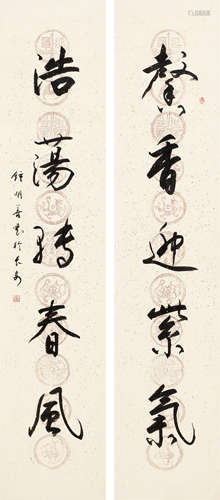 馨香迎紫氣
浩蕩轉春風
鍾明善書於長安